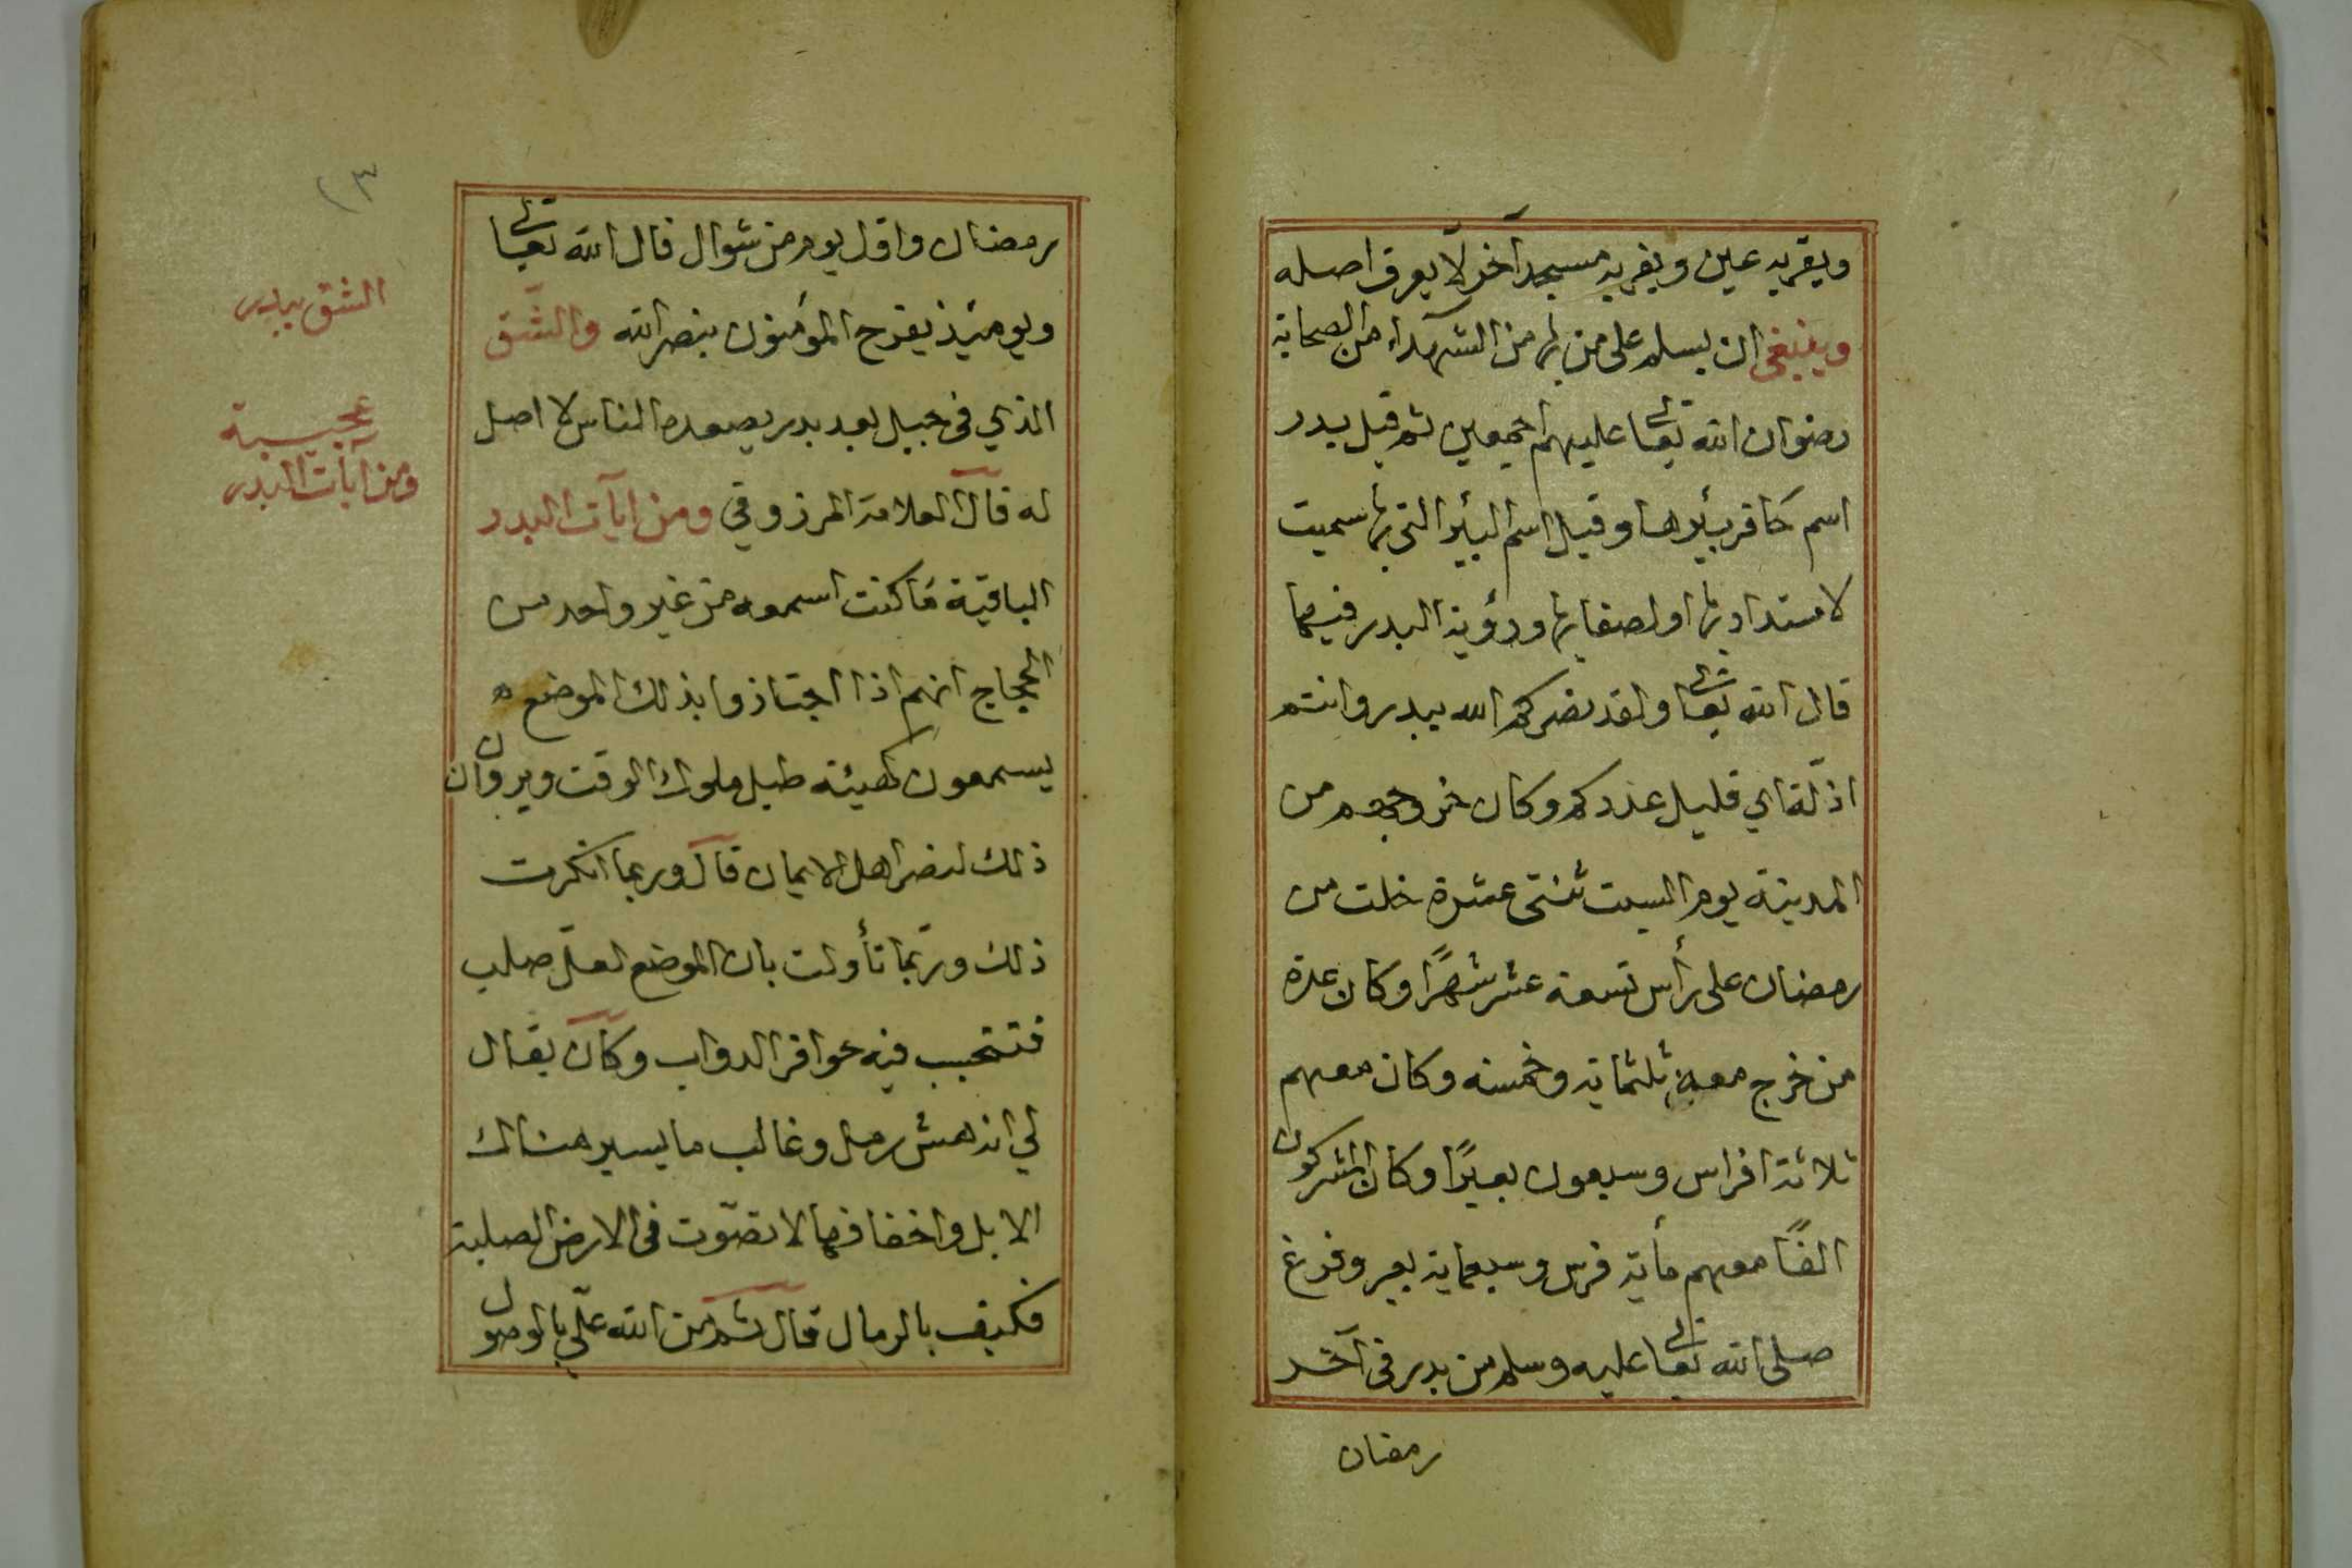 ويقربه عين ويقربه مسجد آخر لا يعرف اصله
وينبغي ان يسلم على من بها من الشهداء من الصحابة
رضوان الله تعالى عليهم اجمعين ثم قيل بدر
اسم حافر بيرها وقيل اسم البئر التي بها سميت
لاستدارتها او لصفايها ورؤية البدر فيها
قال الله تعالى ولقد نصركم الله ببدر وانتم
اذلّة اي قليل عددكم وكان خروجهم من
المدينة يوم السبت ثنتى عشرة خلت من
رمضان على رأس تسعة عشر شهرًا وكان عدة
من خرج معه ثلثماية وخمسة وكان معهم
ثلاثة افراس وسبعون بعيرًا وكان المشركون
الفًا معهم مأية فرس وسبعماية بعير وفرغ
صلى الله تعالى عليه وسلم من بدر في آخر
رمضان
٢٣
رمضان واول يوم من شوال قال الله تعالى
ويومئذ يفرح المؤمنون بنصر الله والشّق
الذي في جبيل بعد بدر يصعده الناس لا اصل
له قال العلامة المرزوقي ومن ايآت البدر
الباقية ما كنت اسمعه من غير واحد من
الحجاج انهم اذا اجتازوا بذلك الموضع
يسمعون كهيئة طبل ملوك الوقت ويرون ان
ذلك لنصر اهل الايمان قال وربما انكرت
ذلك وربّما تأولت بان الموضع لعلّ صلب
فتتجب فيه حوافر الدواب وكان يقال
لي انه همش رمل وغالب ما يسير هناك
الابل واخفافها لا تصوّت في الارض الصلبة
فكيف بالرمال قال ثم من الله علّي بالوصول
الشق ببدر
عجيبة
ومن آيات البدر